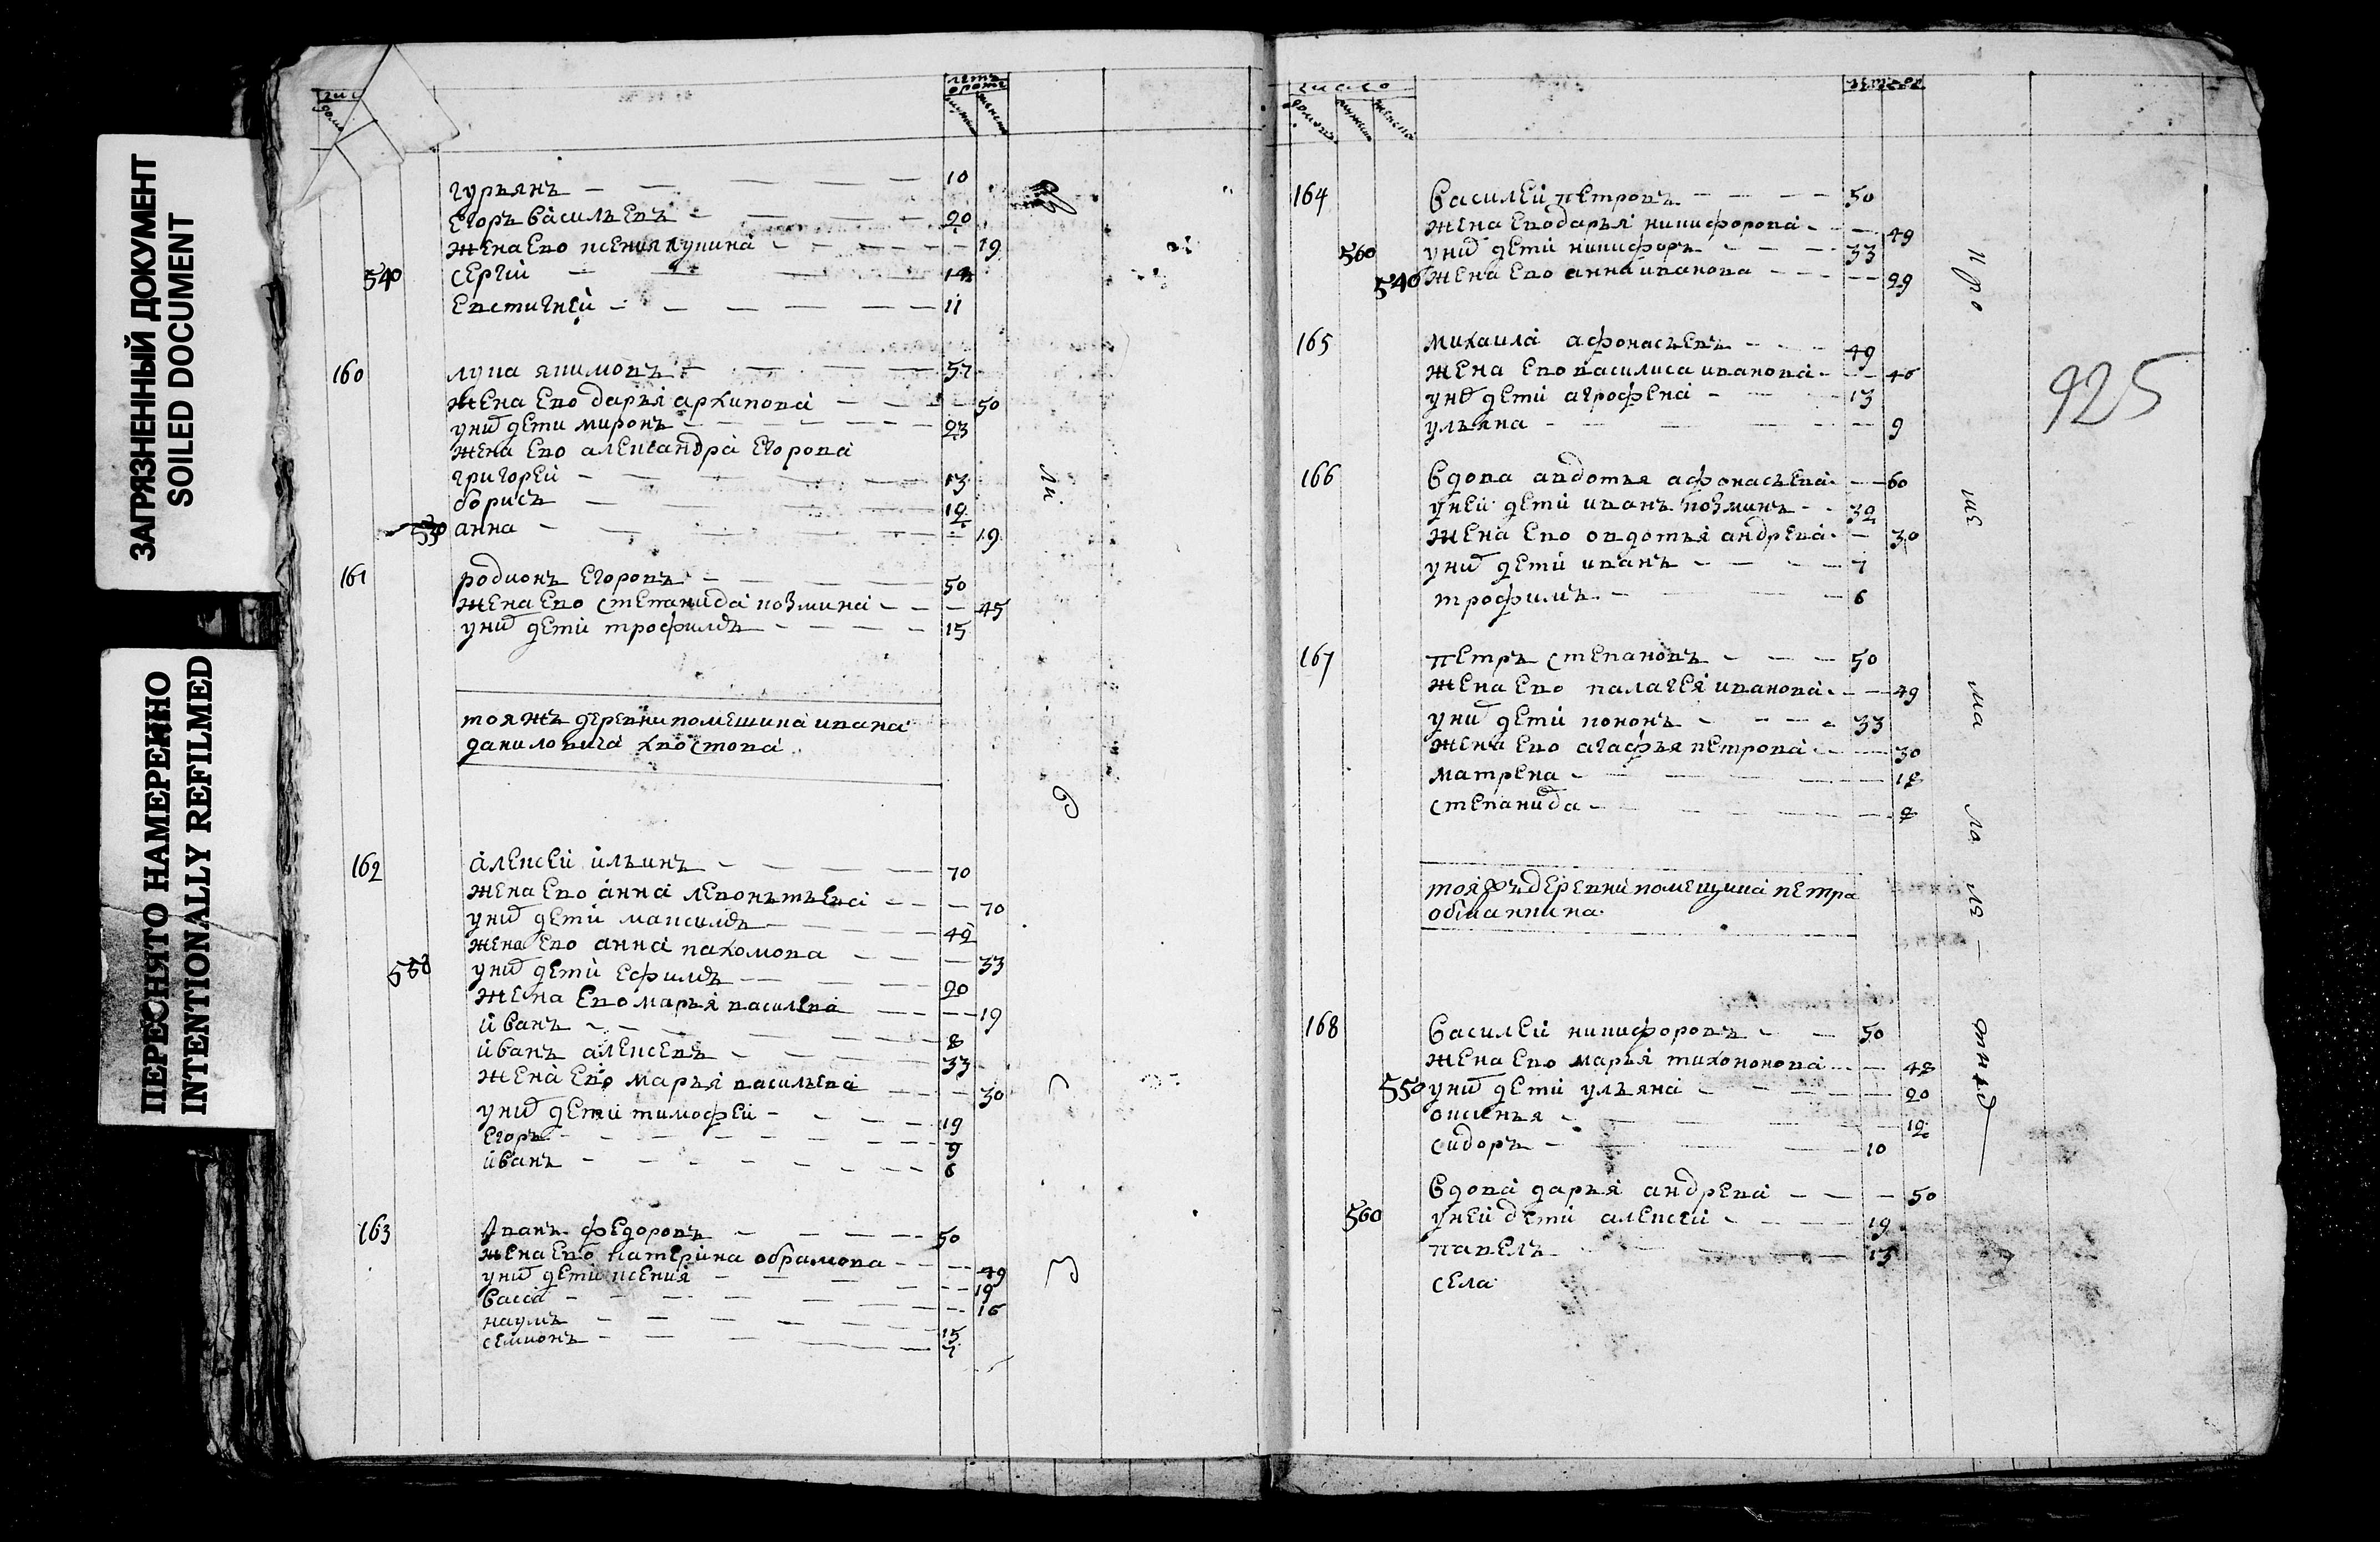 ЗАГРЯЗНЕННЫЙ ДОКУМЕНТ
SOILED DOCUMENT
ПЕРЕСНЯТО НАМЕРЕННО
INTENTIONALLY REFILMED
гурьянъ 10
Егоръ васильевъ 20
жена Ево ксения лупина 19
540 Сергїй
Евстигней 11
160 лупа якимовъ 57
жена Ево дарья архипова 50
у них дети миронъ 23
жена Ево александра Егорова
григорей 13
борисъ 12
530 анна 19
161 родионъ Егоровъ 50
жена Ево Степанида козмина 45
у них дети трофимъ 15
тояжъ деревни помешика ивана
даниловича хвостова
162 алексей ильинъ 70
жена Ево анна левонтьева 70
у них дети максимъ 42
жена Ево анна пахомова 33
у них дети Ефимъ 20
жена Ево марья василева 19
иванъ 8
иванъ алексевъ 33
жена Ево марья васильева 30
у них дети тимофей 19
Егоръ 9
иванъ 6
163 иванъ федоровъ 50
жена Ево катерина обрамова 49
у них дети ксения 19
васса 16
наумъ 15
семионъ 7
число
домовъ мужска женска
164 василей петровъ 50
жена Ево дарья никифорова 49
560 у них дети никифоръ 33
540 жена Ево анна иванова 29
165 михаила афонасьевъ 49
жена Ево василиса иванова 46
у них дети агрофена 13
ульяна 9
166 вдова авдотья афонасьева 60
у ней дети иванъ козминъ 32
жена Ево овдотья андрева 30
у них дети иванъ 7
трофимъ 6
167 петръ степановъ 50
жена Ево палагея иванова 49
у них дети кононъ 33
жена Ево агафья петрова 30
матрена 18
степанида 8
925
тояжъ деревни помещика петра
168 василей никифоровъ 50
жена Ево марья тихононова 48
550 у них дети ульяна 20
оксенья 12
сидоръ 10
вдова дарья андрева 50
560 у ней дети алексей 19
павелъ 15
села